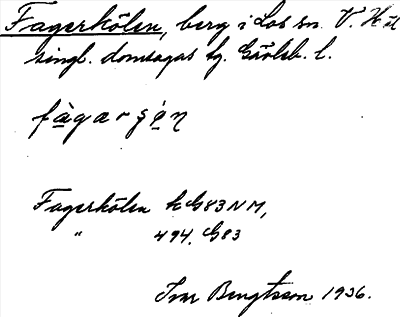 Fagerkölen, berg i Los sn. V. Häl
singl. domsagas tg. Gävleb. l.
fàgarşə̀ņ
Fagerkölen k G83NM,
" 494. G83
Ivar Bengtsson 1936.